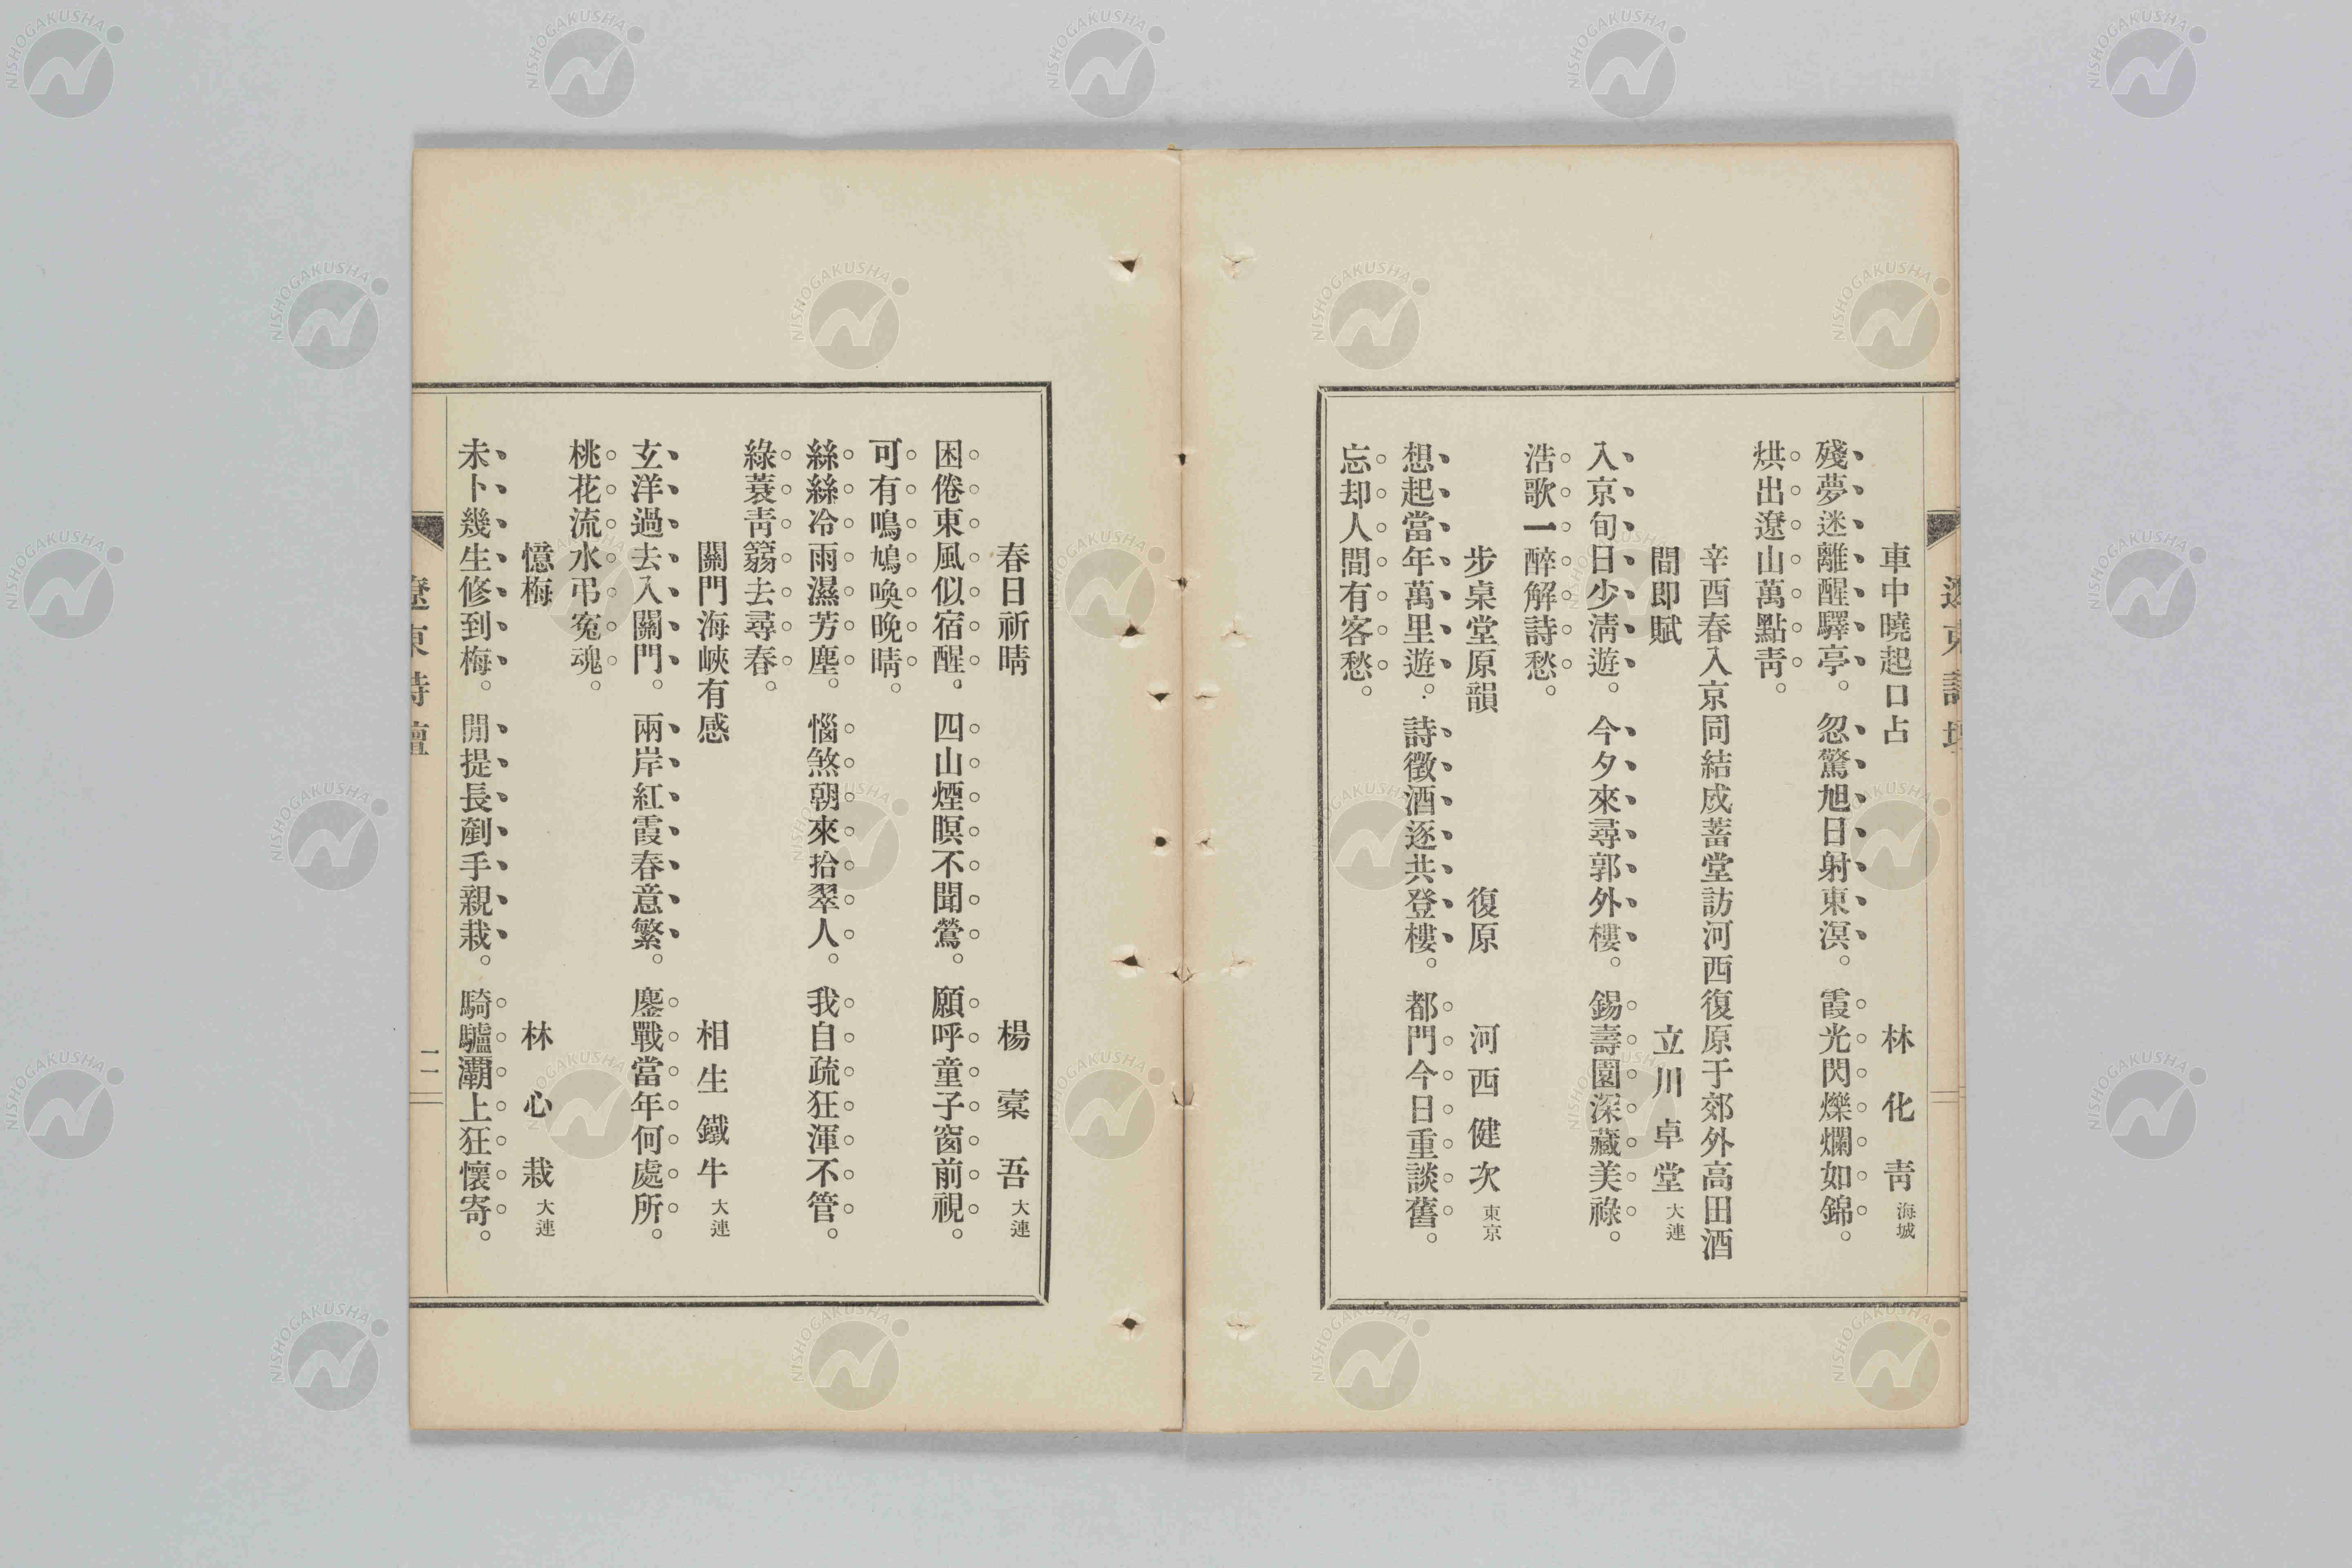 車中曉起口占　林化靑 海城
殘夢迷離醒驛亭。忽驚旭日射東溟。霞光閃爍爛如錦。
烘出遼山萬點靑。
辛酉春入京同結成蓄堂訪河西復原于郊外高田酒
間即賦　立川卓堂 大連
入京旬日少淸遊。今夕來尋郭外樓。錫壽園深藏美祿。
浩歌一醉解詩愁。
步桌堂原韻　復原　河西健次 東京
想起當年萬里遊。詩徵酒逐共登樓。都門今日重談舊。
忘却人間有客愁。
春日祈晴　楊槖吾 大連
困倦東風似宿醒。四山煙暝不聞鶯。願呼童子窗前視。
可有鳴鳩喚晚晴。
絲絲冷雨濕芳塵。惱煞朝來拾翠人。我自疏狂渾不管。
綠蓑靑篛去尋春。
關門海峽有感　相生鐵牛 大連
玄洋過去入關門。兩岸紅霞春意繁。鏖戰當年何處所。
桃花流水弔寃魂。
憶梅　林心栽 大連
未卜幾生修到梅。閒提長劍手親栽。騎驢灞上狂懷寄。
遼東詩壇
二
NISHOGAKUSHA